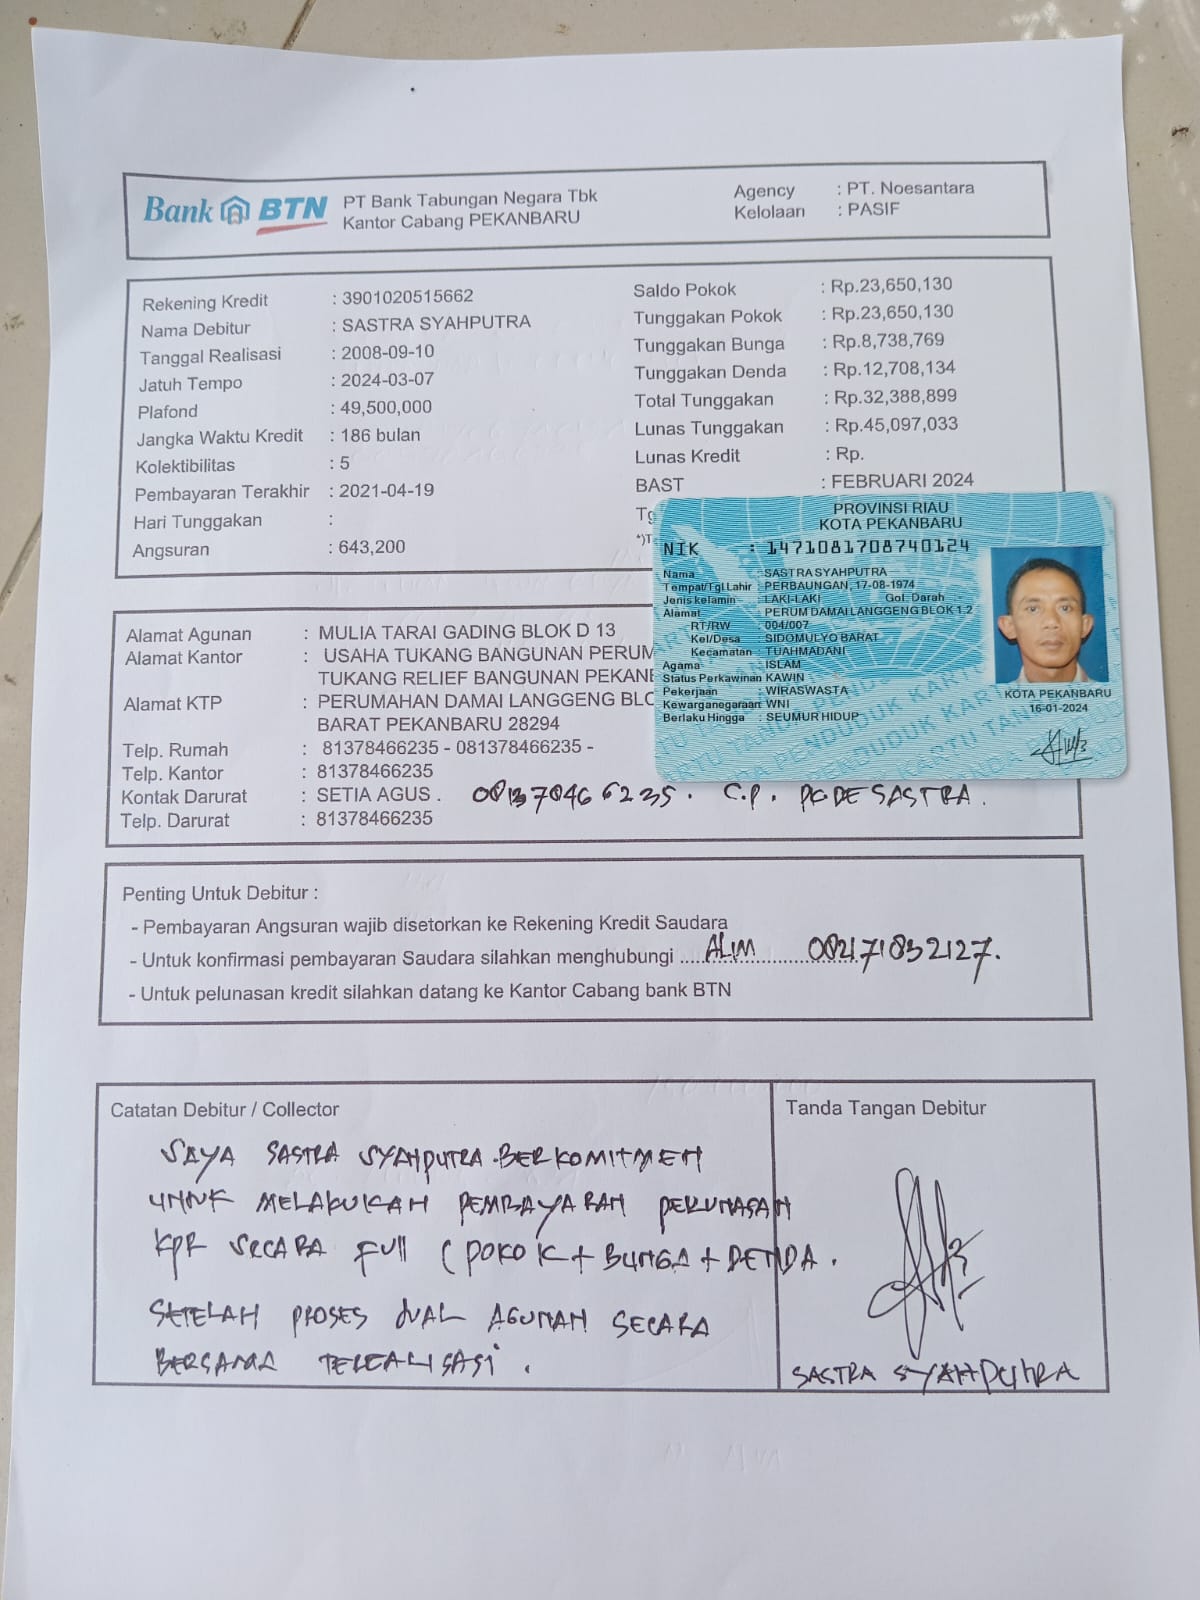 Bank BTN
PT Bank Tabungan Negara Tbk
Kantor Cabang PEKANBARU
Agency : PT. Noesantara
Kelolaan : PASIF
Rekening Kredit : 3901020515662
Nama Debitur : SASTRA SYAHPUTRA
Tanggal Realisasi : 2008-09-10
Jatuh Tempo : 2024-03-07
Plafond : 49,500,000
Jangka Waktu Kredit : 186 bulan
Kolektibilitas : 5
Pembayaran Terakhir : 2021-04-19
Hari Tunggakan :
Angsuran : 643,200
Saldo Pokok : Rp.23,650,130
Tunggakan Pokok : Rp.23,650,130
Tunggakan Bunga : Rp.8,738,769
Tunggakan Denda : Rp.12,708,134
Total Tunggakan : Rp.32,388,899
Lunas Tunggakan : Rp.45,097,033
Lunas Kredit : Rp.
BAST : FEBRUARI 2024
Tg
*)T
PROVINSI RIAU
KOTA PEKANBARU
NIK : 1471081708740124
Nama : SASTRA SYAHPUTRA
Tempat/Tgl Lahir : PERBAUNGAN, 17-08-1974
Jenis kelamin : LAKI-LAKI Gol. Darah : -
Alamat : PERUM DAMAI LANGGENG BLOK 1.2
RT/RW : 004/007
Kel/Desa : SIDOMULYO BARAT
Kecamatan : TUAHMADANI
Agama : ISLAM
Status Perkawinan: KAWIN
Pekerjaan : WIRASWASTA
Kewarganegaraan: WNI
Berlaku Hingga : SEUMUR HIDUP
KOTA PEKANBARU
16-01-2024
Alamat Agunan : MULIA TARAI GADING BLOK D 13
Alamat Kantor : USAHA TUKANG BANGUNAN PERUM
TUKANG RELIEF BANGUNAN PEKANB
Alamat KTP : PERUMAHAN DAMAI LANGGENG BLO
BARAT PEKANBARU 28294
Telp. Rumah : 81378466235 - 081378466235 -
Telp. Kantor : 81378466235
Kontak Darurat : SETIA AGUS . 081378466235. C.P. PGDE SASTRA.
Telp. Darurat : 81378466235
Penting Untuk Debitur :
- Pembayaran Angsuran wajib disetorkan ke Rekening Kredit Saudara
- Untuk konfirmasi pembayaran Saudara silahkan menghubungi ..... ALIM ..... 082171832127.
- Untuk pelunasan kredit silahkan datang ke Kantor Cabang bank BTN
Catatan Debitur / Collector
SAYA SASTRA SYAHPUTRA BERKOMITMEN
UNTUK MELAKUKAN PEMBAYARAN PELUNASAN
KPR SECARA FULL (POKOK + BUNGA + DENDA.
SETELAH PROSES JUAL AGUNAN SECARA
BERSAMA TEREALISASI.
Tanda Tangan Debitur
SASTRA SYAHPUTRA